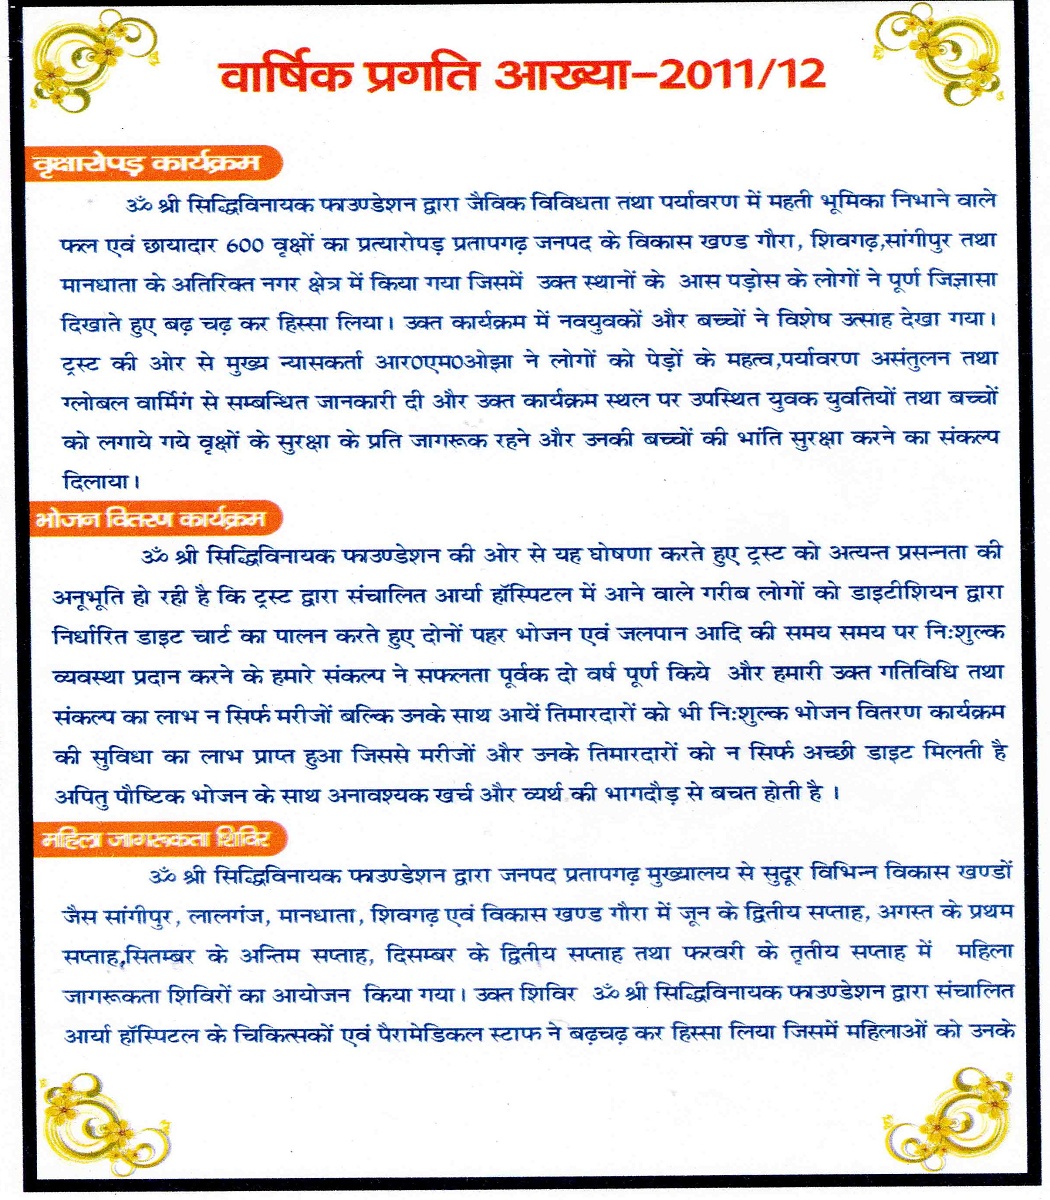 वार्षिक प्रगति आख्या–2011/12
वृक्षारोपड़ कार्यक्रम
ॐ श्री सिद्धिविनायक फाउण्डेशन द्वारा जैविक विविधता तथा पर्यावरण में महती भूमिका निभाने वाले
फल एवं छायादार 600 वृक्षों का प्रत्यारोपड़ प्रतापगढ़ जनपद के विकास खण्ड गौरा, शिवगढ़,सांगीपुर तथा
मानधाता के अतिरिक्त नगर क्षेत्र में किया गया जिसमें उक्त स्थानों के आस पड़ोस के लोगों ने पूर्ण जिज्ञासा
दिखाते हुए बढ़ चढ़ कर हिस्सा लिया। उक्त कार्यक्रम में नवयुवकों और बच्चों ने विशेष उत्साह देखा गया।
ट्रस्ट की ओर से मुख्य न्यासकर्ता आर0एम0ओझा ने लोगों को पेड़ों के महत्व,पर्यावरण असंतुलन तथा
ग्लोबल वार्मिंग से सम्बन्धित जानकारी दी और उक्त कार्यक्रम स्थल पर उपस्थित युवक युवतियों तथा बच्चों
को लगाये गये वृक्षों के सुरक्षा के प्रति जागरूक रहने और उनकी बच्चों की भांति सुरक्षा करने का संकल्प
दिलाया।
भोजन वितरण कार्यक्रम
ॐ श्री सिद्धिविनायक फाउण्डेशन की ओर से यह घोषणा करते हुए ट्रस्ट को अत्यन्त प्रसन्नता की
अनूभूति हो रही है कि ट्रस्ट द्वारा संचालित आर्या हॉस्पिटल में आने वाले गरीब लोगों को डाइटीशियन द्वारा
निर्धारित डाइट चार्ट का पालन करते हुए दोनों पहर भोजन एवं जलपान आदि की समय समय पर निःशुल्क
व्यवस्था प्रदान करने के हमारे संकल्प ने सफलता पूर्वक दो वर्ष पूर्ण किये और हमारी उक्त गतिविधि तथा
संकल्प का लाभ न सिर्फ मरीजों बल्कि उनके साथ आयें तिमारदारों को भी निःशुल्क भोजन वितरण कार्यक्रम
की सुविधा का लाभ प्राप्त हुआ जिससे मरीजों और उनके तिमारदारों को न सिर्फ अच्छी डाइट मिलती है
अपितु पौष्टिक भोजन के साथ अनावश्यक खर्च और व्यर्थ की भागदौड़ से बचत होती है ।
महिला जागरूकता शिविर
ॐ श्री सिद्धिविनायक फाउण्डेशन द्वारा जनपद प्रतापगढ़ मुख्यालय से सुदूर विभिन्न विकास खण्डों
जैस सांगीपुर, लालगंज, मानधाता, शिवगढ़ एवं विकास खण्ड गौरा में जून के द्वितीय सप्ताह, अगस्त के प्रथम
सप्ताह,सितम्बर के अन्तिम सप्ताह, दिसम्बर के द्वितीय सप्ताह तथा फरवरी के तृतीय सप्ताह में महिला
जागरूकता शिविरों का आयोजन किया गया। उक्त शिविर ॐ श्री सिद्धिविनायक फाउण्डेशन द्वारा संचालित
आर्या हॉस्पिटल के चिकित्सकों एवं पैरामेडिकल स्टाफ ने बढ़चढ़ कर हिस्सा लिया जिसमें महिलाओं को उनके